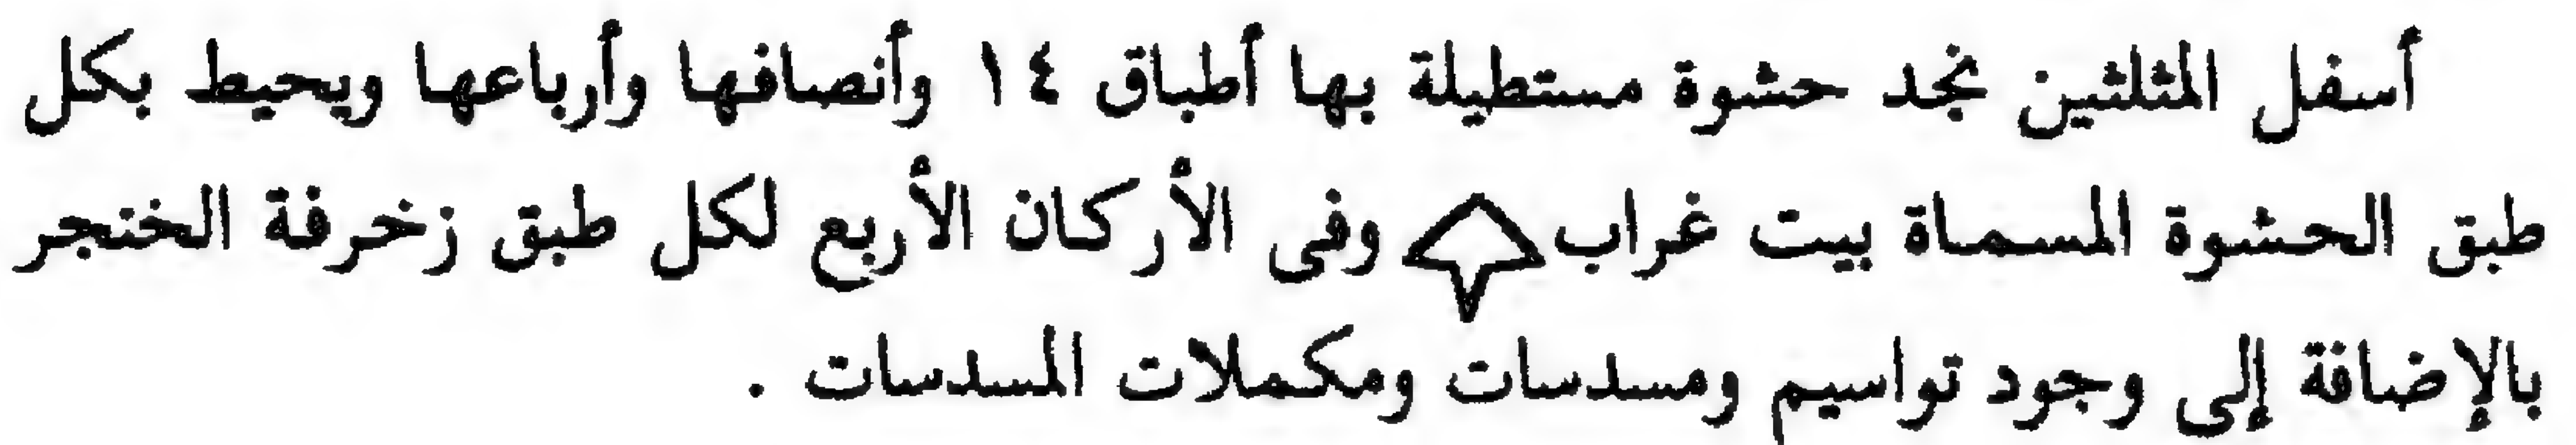 أسفل المثلثين نجد حشوة مستطيلة بها أطباق ١٤ وأنصافها وأرباعها ويحيط بكل
طبق الحشوة المسماة بيت غراب وفى الأركان الأربع لكل طبق زخرفة الخنجر
بالإضافة إلى وجود تواسيم ومسدسات ومكملات المسدسات .